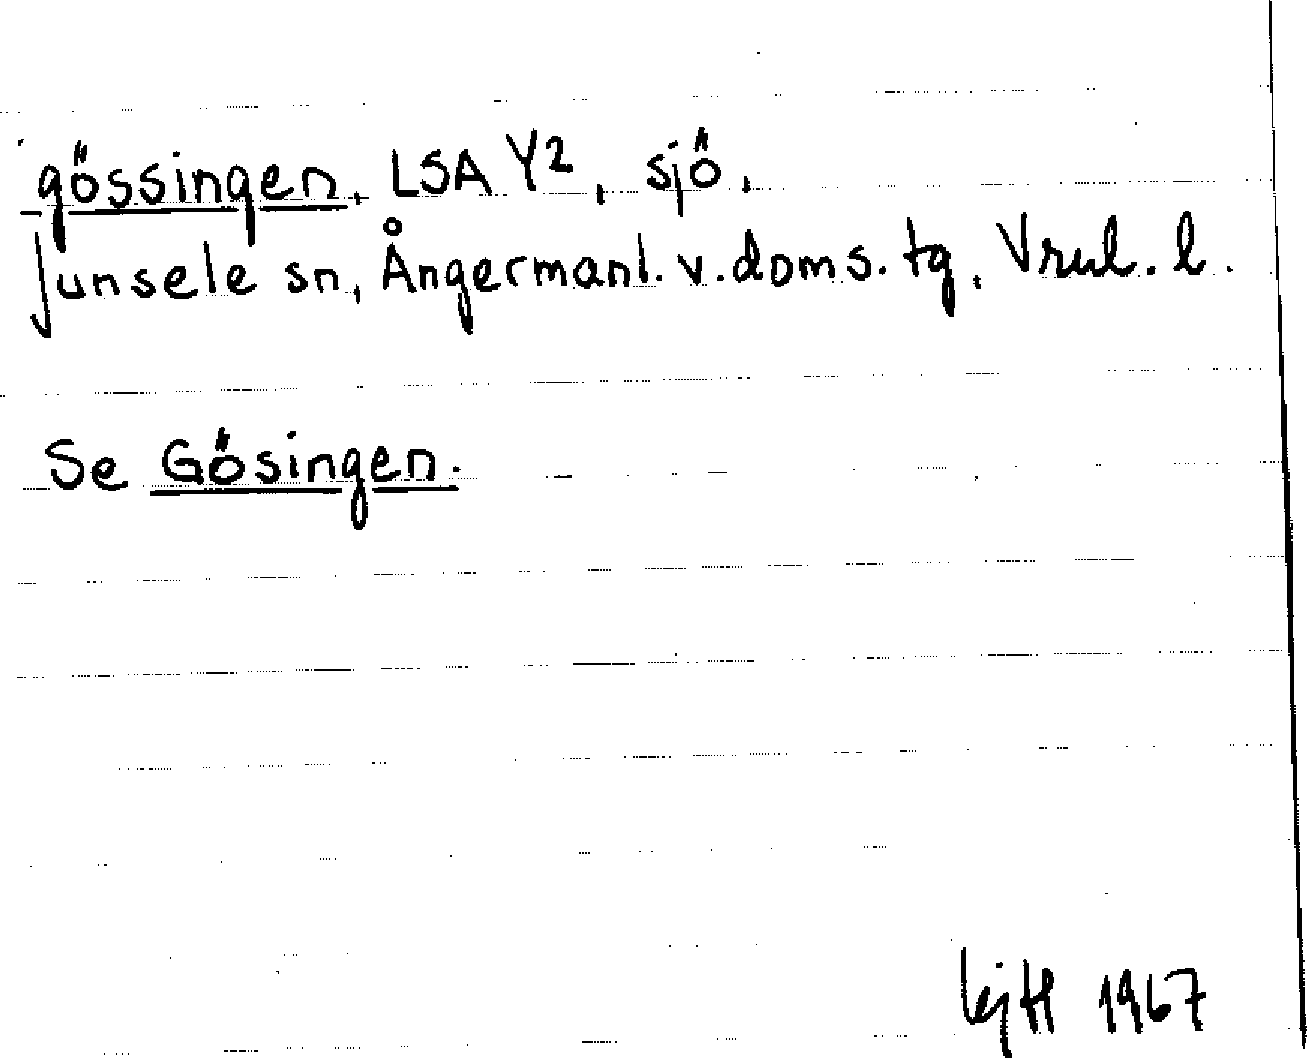 gössingen, LSA Y2, sjö,
Junsele sn, Ångermanl. v. doms. tg, Vrnl. l.
Se Gösingen.
1967